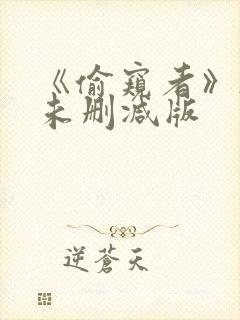 《偷窥者》
未删减版
逆蒼天